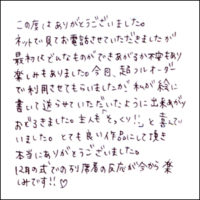 この度はありがとうございました。
ネットで見てお電話させていただきましたが
最初はどんなものができあがるか不安もあり
楽しみもありました。今回、超フルオーダー
で利用させてもらいましたが、私が絵に
書いて送らせていただいたように出来あがり
おどろきました。主人も“そっくり!!”と喜んで
いました。とても良い作品にして頂き
本当にありがとうございました。
12月の式での列席者の反応が今から楽
しみです!!♡